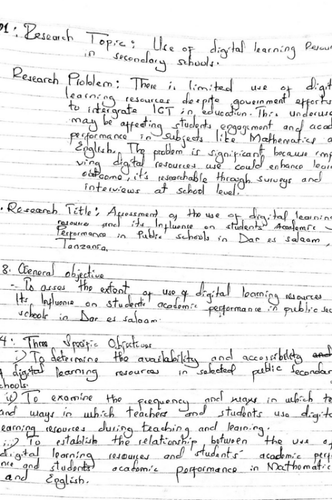 01: Research Topic: Use of digital learning Resou
in secondary schools.
Research Problem: There is limited use of digit
learning resources despite government effort
to intergrate ICT in education. This underuse
may be affecting students engagement and acad
performance in subjects like Mathematics a
English. The problem is significant because imp
ving digital resources use could enhance lear
outcome, it's researchable through surveys and
interviews at school level.
. Research Title: Assessment of the use of digital learning
resource and its Influence on students' Academic
Performance in Public schools in Dar es salaam
Tanzania.
3. General objective
- To asses the extent of use of digital learning resources
Its Influence on students' academic performance in public sec
school in Dar es salaam.
4: Three Specific Objectives
i) To determine the availability and accessibility and
digital learning resources in selected public secondar
schools.
ii) To examine the frequency and ways in which te
and ways in which teachers and students use digita
earning resources during teaching and learning.
To establish the relationship between the use of
digital learning resources and students' academic perf
nce and students' academic performance in Mathematic
and English.